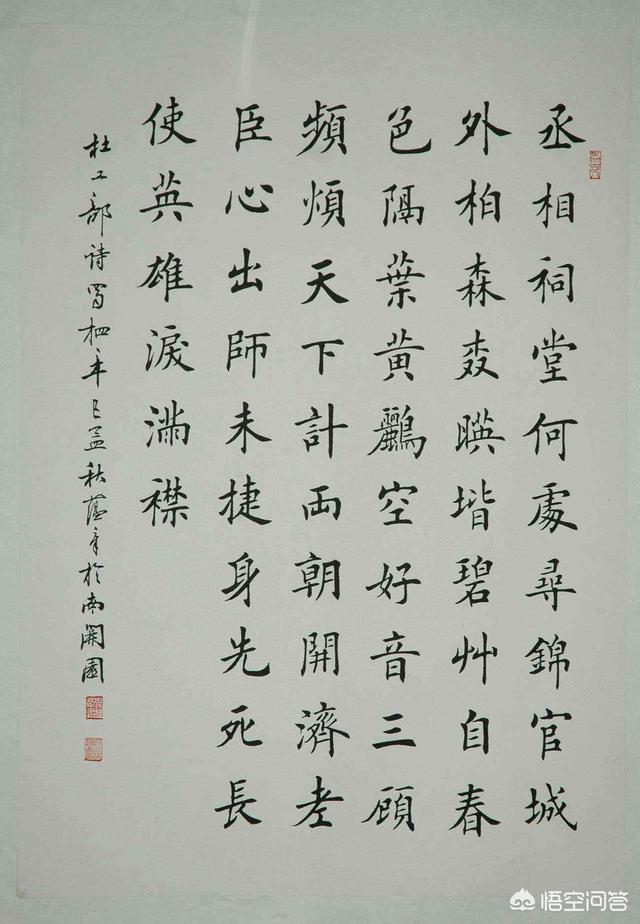 丞相祠堂何處尋錦官城
外柏森森暎堦碧艸自春
色隔葉黃鸝空好音三顧
頻煩天下計兩朝開濟老
臣心出師未捷身先死長
使英雄淚滿襟
杜工部诗蜀相辛巳孟秋於南開園
悟空问答